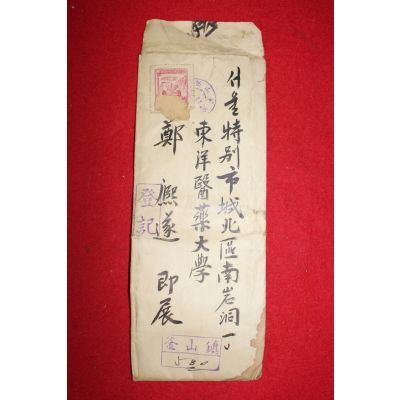 서울特別市城北區南岩洞一
東洋醫藥大學
鄭熙遂 即展
登記
釜山鎭
580